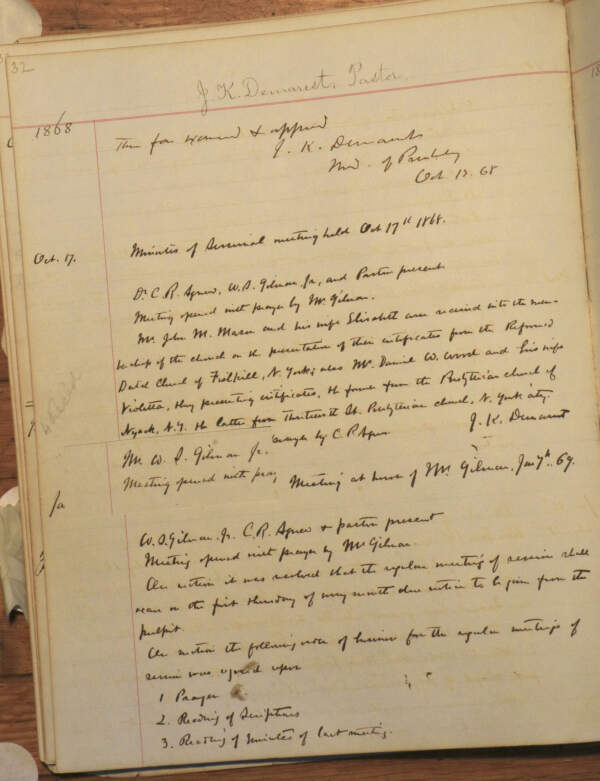 32
J. K. Demarest, Pastor.
1868
Thus far examined & approved
J. K. Demarest
Mod. of Presbtry
Oct. 13. 68
Oct. 17.
Minutes of Sessional meeting held Oct 17th 1868.
Dr C. R. Agnew, W. S. Gilman Jr, and Pastor present
Meeting opened with prayer by Mr. Gilman.
Mr. John M. Mason and his wife Elisabet were received into the mem-
bership of the church on the presentation of their certificates from the Reformed
Dutch Church of Fishkill, N. York; also Mr. Daniel W. Wood and his wife
Violetta, they presenting certificates, the former from the Presbyterian church of
Nyack, N.Y. the latter from Thirteenth St. Presbyterian church, N. York city.
Mr. W. S. Gilman Jr. prayer by C R Agnew
J. K. Demarest
Meeting opened with pray
Meeting at house of Mr. Gilman, Jan 7th. 69.
Ja
W. S. Gilman, Jr. C. R. Agnew & pastor present
Meeting opened with prayer by Mr Gilman.
On motion it was resolved that the regular meeting of session shall
occur on the first Thursday of every month due notice to be given from the
pulpit.
On motion the following order of business for the regular meetings of
session was agreed upon
1 Prayer
2. Reading of Scriptures
3. Reading of minutes of last meeting.